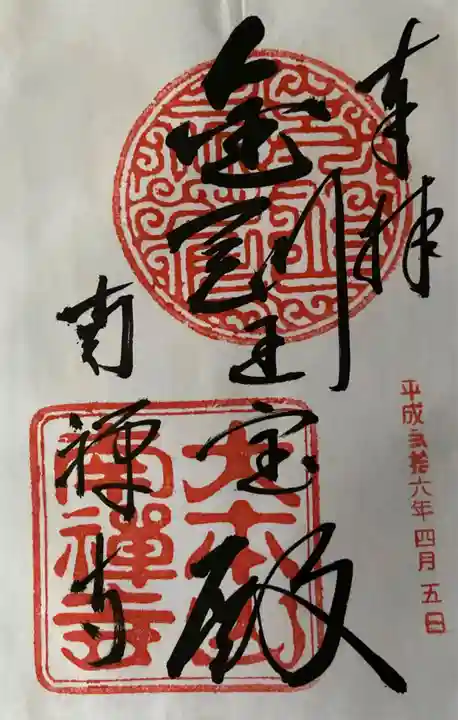 奉拝
平成弐拾六年四月五日
金剛王宝殿
南禅寺
大本山
南禅寺